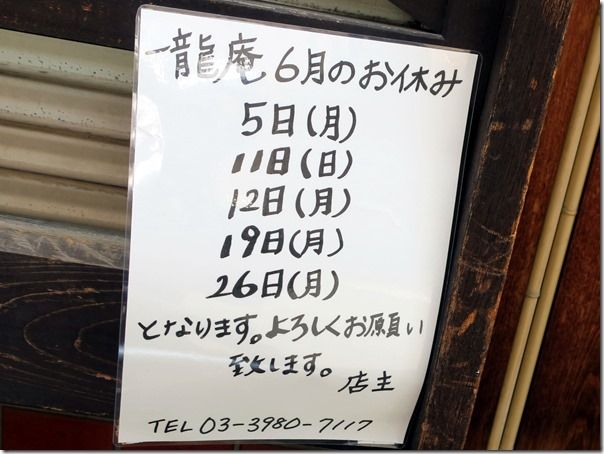 一龍庵 6月のお休み
5日(月)
11日(日)
12日(月)
19日(月)
26日(月)
となります。よろしくお願い
致します。
店主
TEL 03-3980-7117